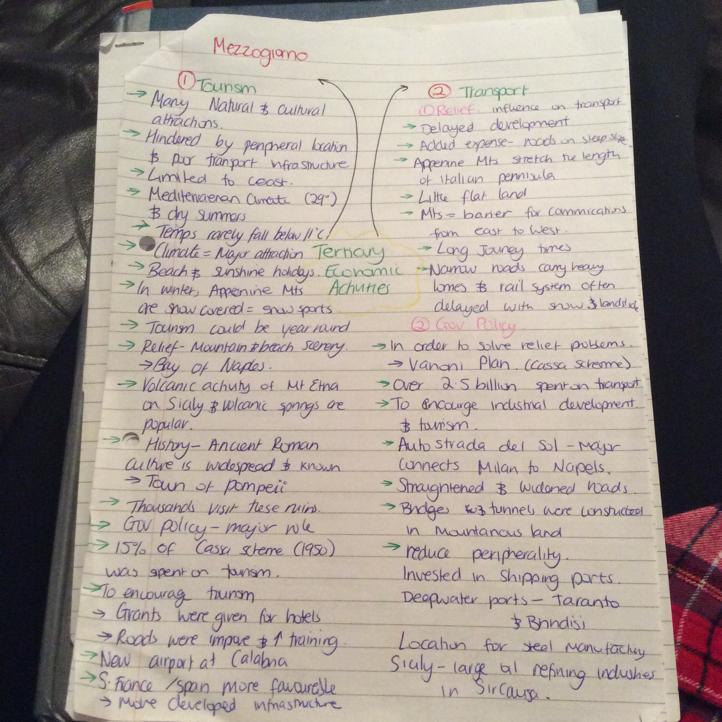 Mezzogiorno
① Tourism
→ Many Natural & Cultural
attractions.
→ Hindered by peripheral location
& poor transport infrastructure
→ Limited to coast.
→ Mediterranean Climate (29°)
& dry summers
→ Temps rarely fall below 11°c.
→ Climate = Major attraction
→ Beach & sunshine holidays.
→ In winter, Appenine Mts
are snow covered = snow sports
→ Tourism could be year round
→ Relief - Mountain & beach scenery.
→ Bay of Naples.
→ Volcanic activity of Mt Etna
on Sicily & volcanic springs are
popular.
→ History - Ancient Roman
culture is widespread & known
→ Town of pompeii
→ Thousands visit these ruins.
→ Gov policy - major role
→ 15% of Cassa scheme (1950)
was spent on tourism.
→ To encourage tourism
→ Grants were given for hotels
→ Roads were improve & ↑ training.
→ New airport at Calabria
→ S. France / span more favourable
→ More developed infrastructure
Tertiary
Economic
Activities
② Transport
① Relief influence on transport
→ Delayed development
→ Added expense - roads on steep
→ Appenine Mts stretch the length
of Italian peninsula
→ Little flat land
→ Mts = barrier for commications
from east to West.
→ Long Journey times
→ Narrow roads carry heavy
lorries & rail system often
delayed with snow &
② Gov Policy
→ In order to solve relief problems.
→ Vanoni Plan. (Cassa scheme)
→ Over 2.5 billion spent on transport
→ To encourge industrial development
& tourism.
→ Autostrada del Sol - Major
connects Milan to Napels.
→ Straightened & widened roads.
→ Bridges & tunnels were constructed
in Mountanous land
→ reduce peripherality.
Invested in Shipping ports.
Deepwater ports - Taranto
& Brindisi
Location for steel
Sicily - large oil refining industries
in Siracusa.